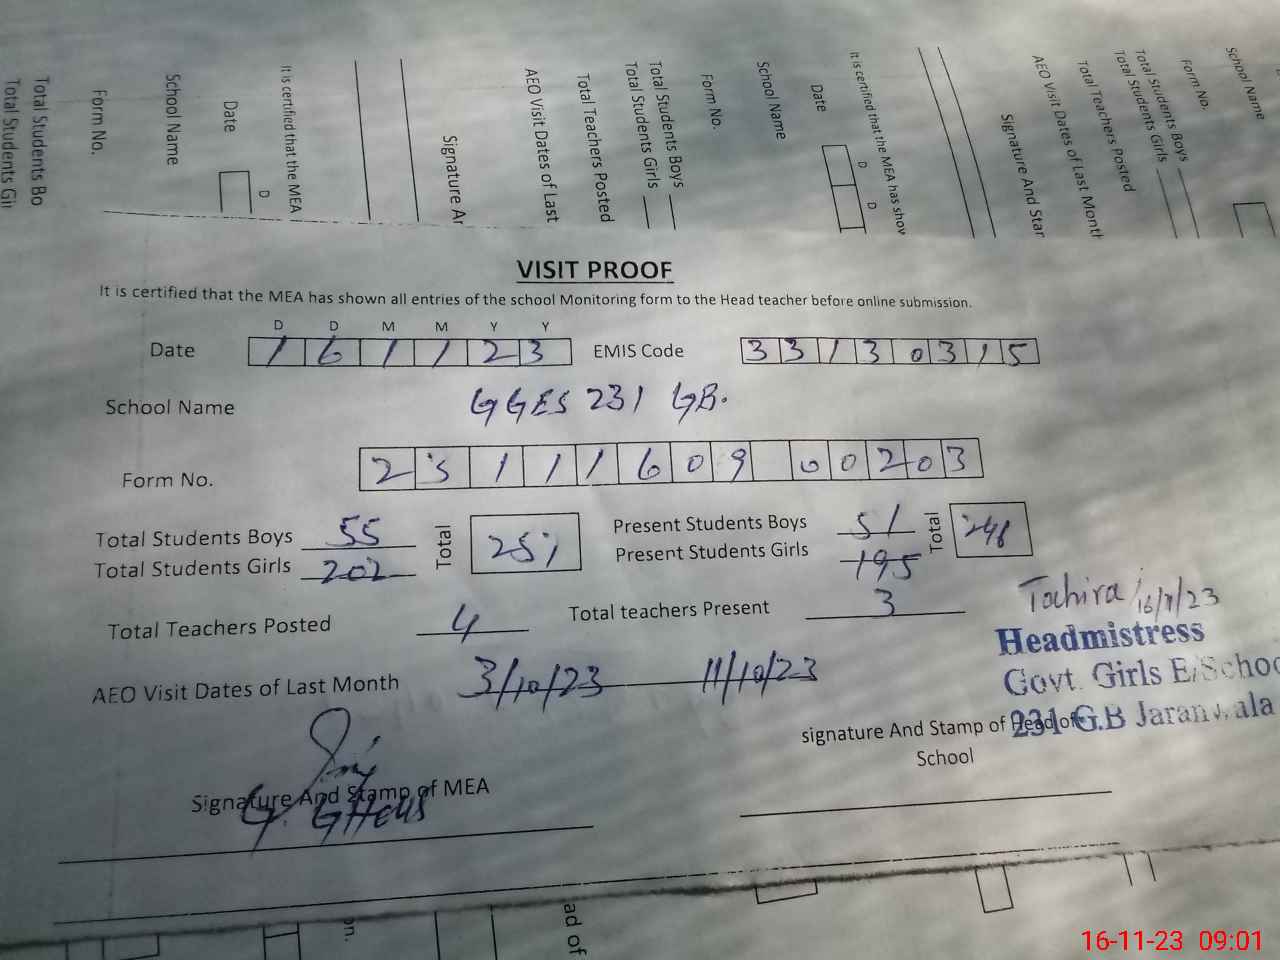 Total Students Bo
Form No.
School Name
Date
D
It is certified that the MEA
Signature Ar
AEO Visit Dates of Last
Total Teachers Posted
Total Students Girls
Total Students Boys
Form No.
School Name
Date
D D
It is certified that the MEA has shov
Signature And Star
AEO Visit Dates of Last Month
Total Teachers Posted
Total Students Girls
Total Students Boys
Form No.
School Name
VISIT PROOF
It is certified that the MEA has shown all entries of the school Monitoring form to the Head teacher before online submission.
D D M M Y Y
Date 1 6 1 1 2 3 EMIS Code 3 3 1 3 0 3 1 5
School Name GGES 231 GB.
Form No. 2 3 1 1 1 6 0 9 0 0 2 0 3
Total Students Boys 55 Total 257 Present Students Boys 51 Total 246
Total Students Girls 202 Present Students Girls 195
Total Teachers Posted 4 Total teachers Present 3
Tahira 16/11/23
Headmistress
Govt. Girls E/Schoo
231 G.B Jaranwala
AEO Visit Dates of Last Month 3/10/23 11/10/23
signature And Stamp of Head of
School
Signature And Stamp of MEA
ad of
16-11-23 09:01